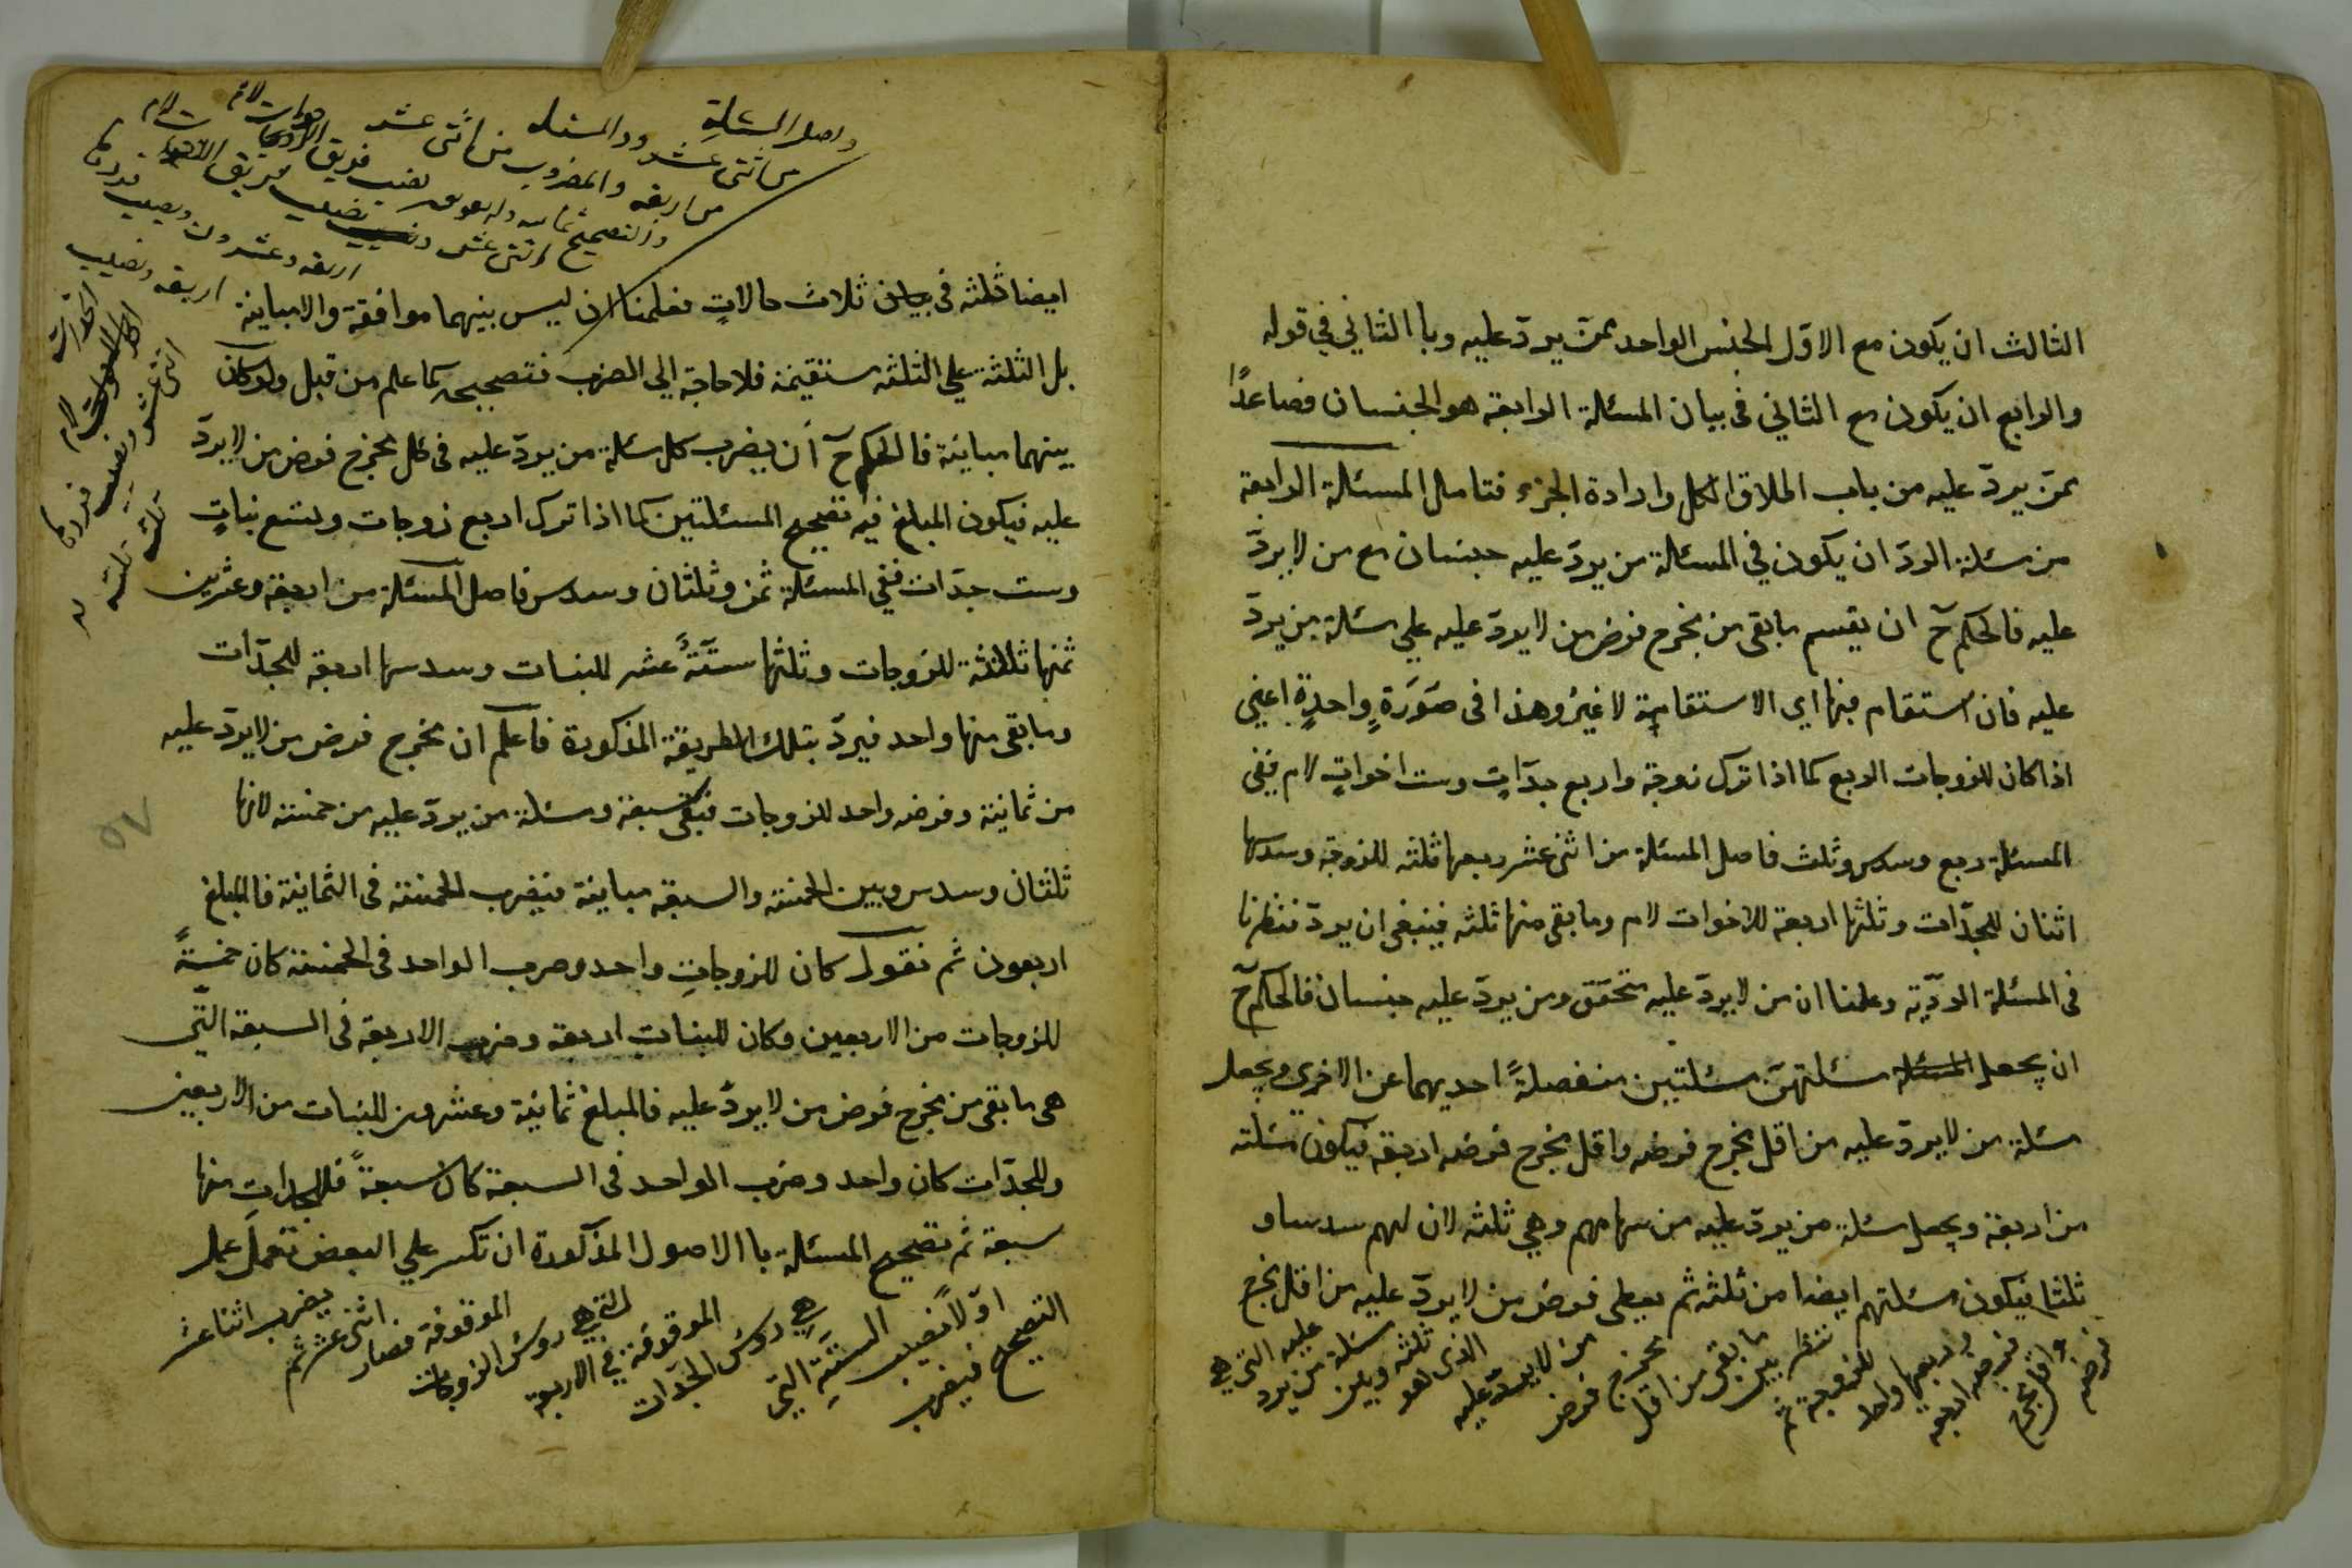 الثالث ان يكون مع الاوّل الجنس الواحد ممّن يردّ عليه وبا الثاني في قوله
والرابع ان يكون مع الثاني في بيان المسئلة الرابعة هو الجنسان فصاعدًا
ممّن يردّ عليه من باب اطلاق الكل وارادة الجزء فتامل المسئلة الرابعة
من مسئلة الردّ ان يكون في المسئلة من يردّ عليه جنسان مع من لا يردّ
عليه فالحكم ح ان يقسم ما بقى من مخرج فرض من لا يردّ عليه علي مسئلة من يردّ
عليه فان استقام فبها اي الاستقامة لا غير وهذا في صَوَرَةٍ واحدةٍ اعني
اذا كان للزوجات الربع كما اذا ترك زوجة واربع جدّاتٍ وست اخواتٍ لام ففي
المسئلة ربع وسدس وثلث فاصل المسئلة من اثنى عشر ربعها ثلثه للزوجة وسدسها
اثنان للجدّات وثلثها اربعة للاخوات لام وما بقى منها ثلثه فينبغى ان يردّ فنظرنا
في المسئلة الردّية وعلمنا ان من لا يردّ عليه متحقق ومن يردّ عليه جنسان فالحكم ح
ان يجعل المسئلة مسئلتهنّ مسئلتين منفصلةً احديهما عن الاخرى ويجعل
مسئلة من لا يردّ عليه من اقل مخرج فرضه واقل مخرج فرضه اربعة فيكون مسئلته
من اربعة ويجعل مسئلة من يردّ عليه من سهامهم وهي ثلثه لان لهم سدسا و
ثلثا فيكون مسئلتهم ايضا من ثلثه ثم يعطى فرض من لا يردّ عليه من اقل مخرج
فرضه
واقل مخرج
فرضه اربعة
وربعها واحد
للزوجة ثم
ننظر بين
ما بقى من اقل
مخرج فرض
من لا يردّ عليه
الذى هو
ثلثه وبين
مسئلة من يرد
عليه التي هي
واصل المسئلة
من اثنى عشر ورد المسئله
من اربعه والمضروب من اثنى عشر
اثنى عشر ونصيب
اربعه وعشرون ونصيب
اربعه ونصيب
ايضا ثلثه في بيان ثلاث حالاتٍ فعلمنا ان ليس بينهما موافقة والامباينة
بل الثلثة علي الثلثه مستقيمة فلا حاجة الي الضرب فتصحيحه كما علم من قبل ولو كان
بينهما مباينة فالحكم ح أن يضرب كل مسئلة من يردّ عليه في كل مخرج فرض من لا يردّ
عليه فيكون المبلغ فيه تصحيح المسئلتين كما اذا ترك اربع زوجات وتسع بناتٍ
وست جدّات ففي المسئلة ثمن وثلثان وسدس فاصل المسئلة من اربعة وعشرين
ثمنها ثلاثة للزوجات وثلثها ستّةُ عشر للبنات وسدسها اربعة للجدّات
وما بقى منها واحد فيردّ بتلك الطريقة المذكورة فاعلم ان مخرج فرض من لا يردّ عليه
من ثمانية وفرضه واحد للزوجات فبقى سبعة ومسئلة من يردّ عليه من خمسة لانها
ثلثان وسدس وبين الخمسة والسبعة مباينة فيضرب الخمسة في الثمانية فالمبلغ
اربعون ثم نقول كان للزوجاتِ واحد وضرب الواحد في الخمسة كان خمسةً
للزوجات من الاربعين وكان للبنات اربعة وضرب الاربعة في السبعة التي
هى ما بقى من مخرج فرض من لا يردّ عليه فالمبلغ ثمانية وعشرون للبنات من الاربعين
وللجدّات كان واحد وضرب الواحد في السبعة كان سبعةً فللجداتِ منها
سبعة ثم تصحيح المسئلة با الاصول المذكورة ان تكسر علي البعض تعمل عمل
التصحيح فيضرب
اوّلاً نصيب الستّة التي
هي روس الجدّات
الموقوفة في الاربعة
التي هي روس الزوجات
الموقوفة فصار
اثنى عشر ثم
يضرب اثنا عشر
٥٧